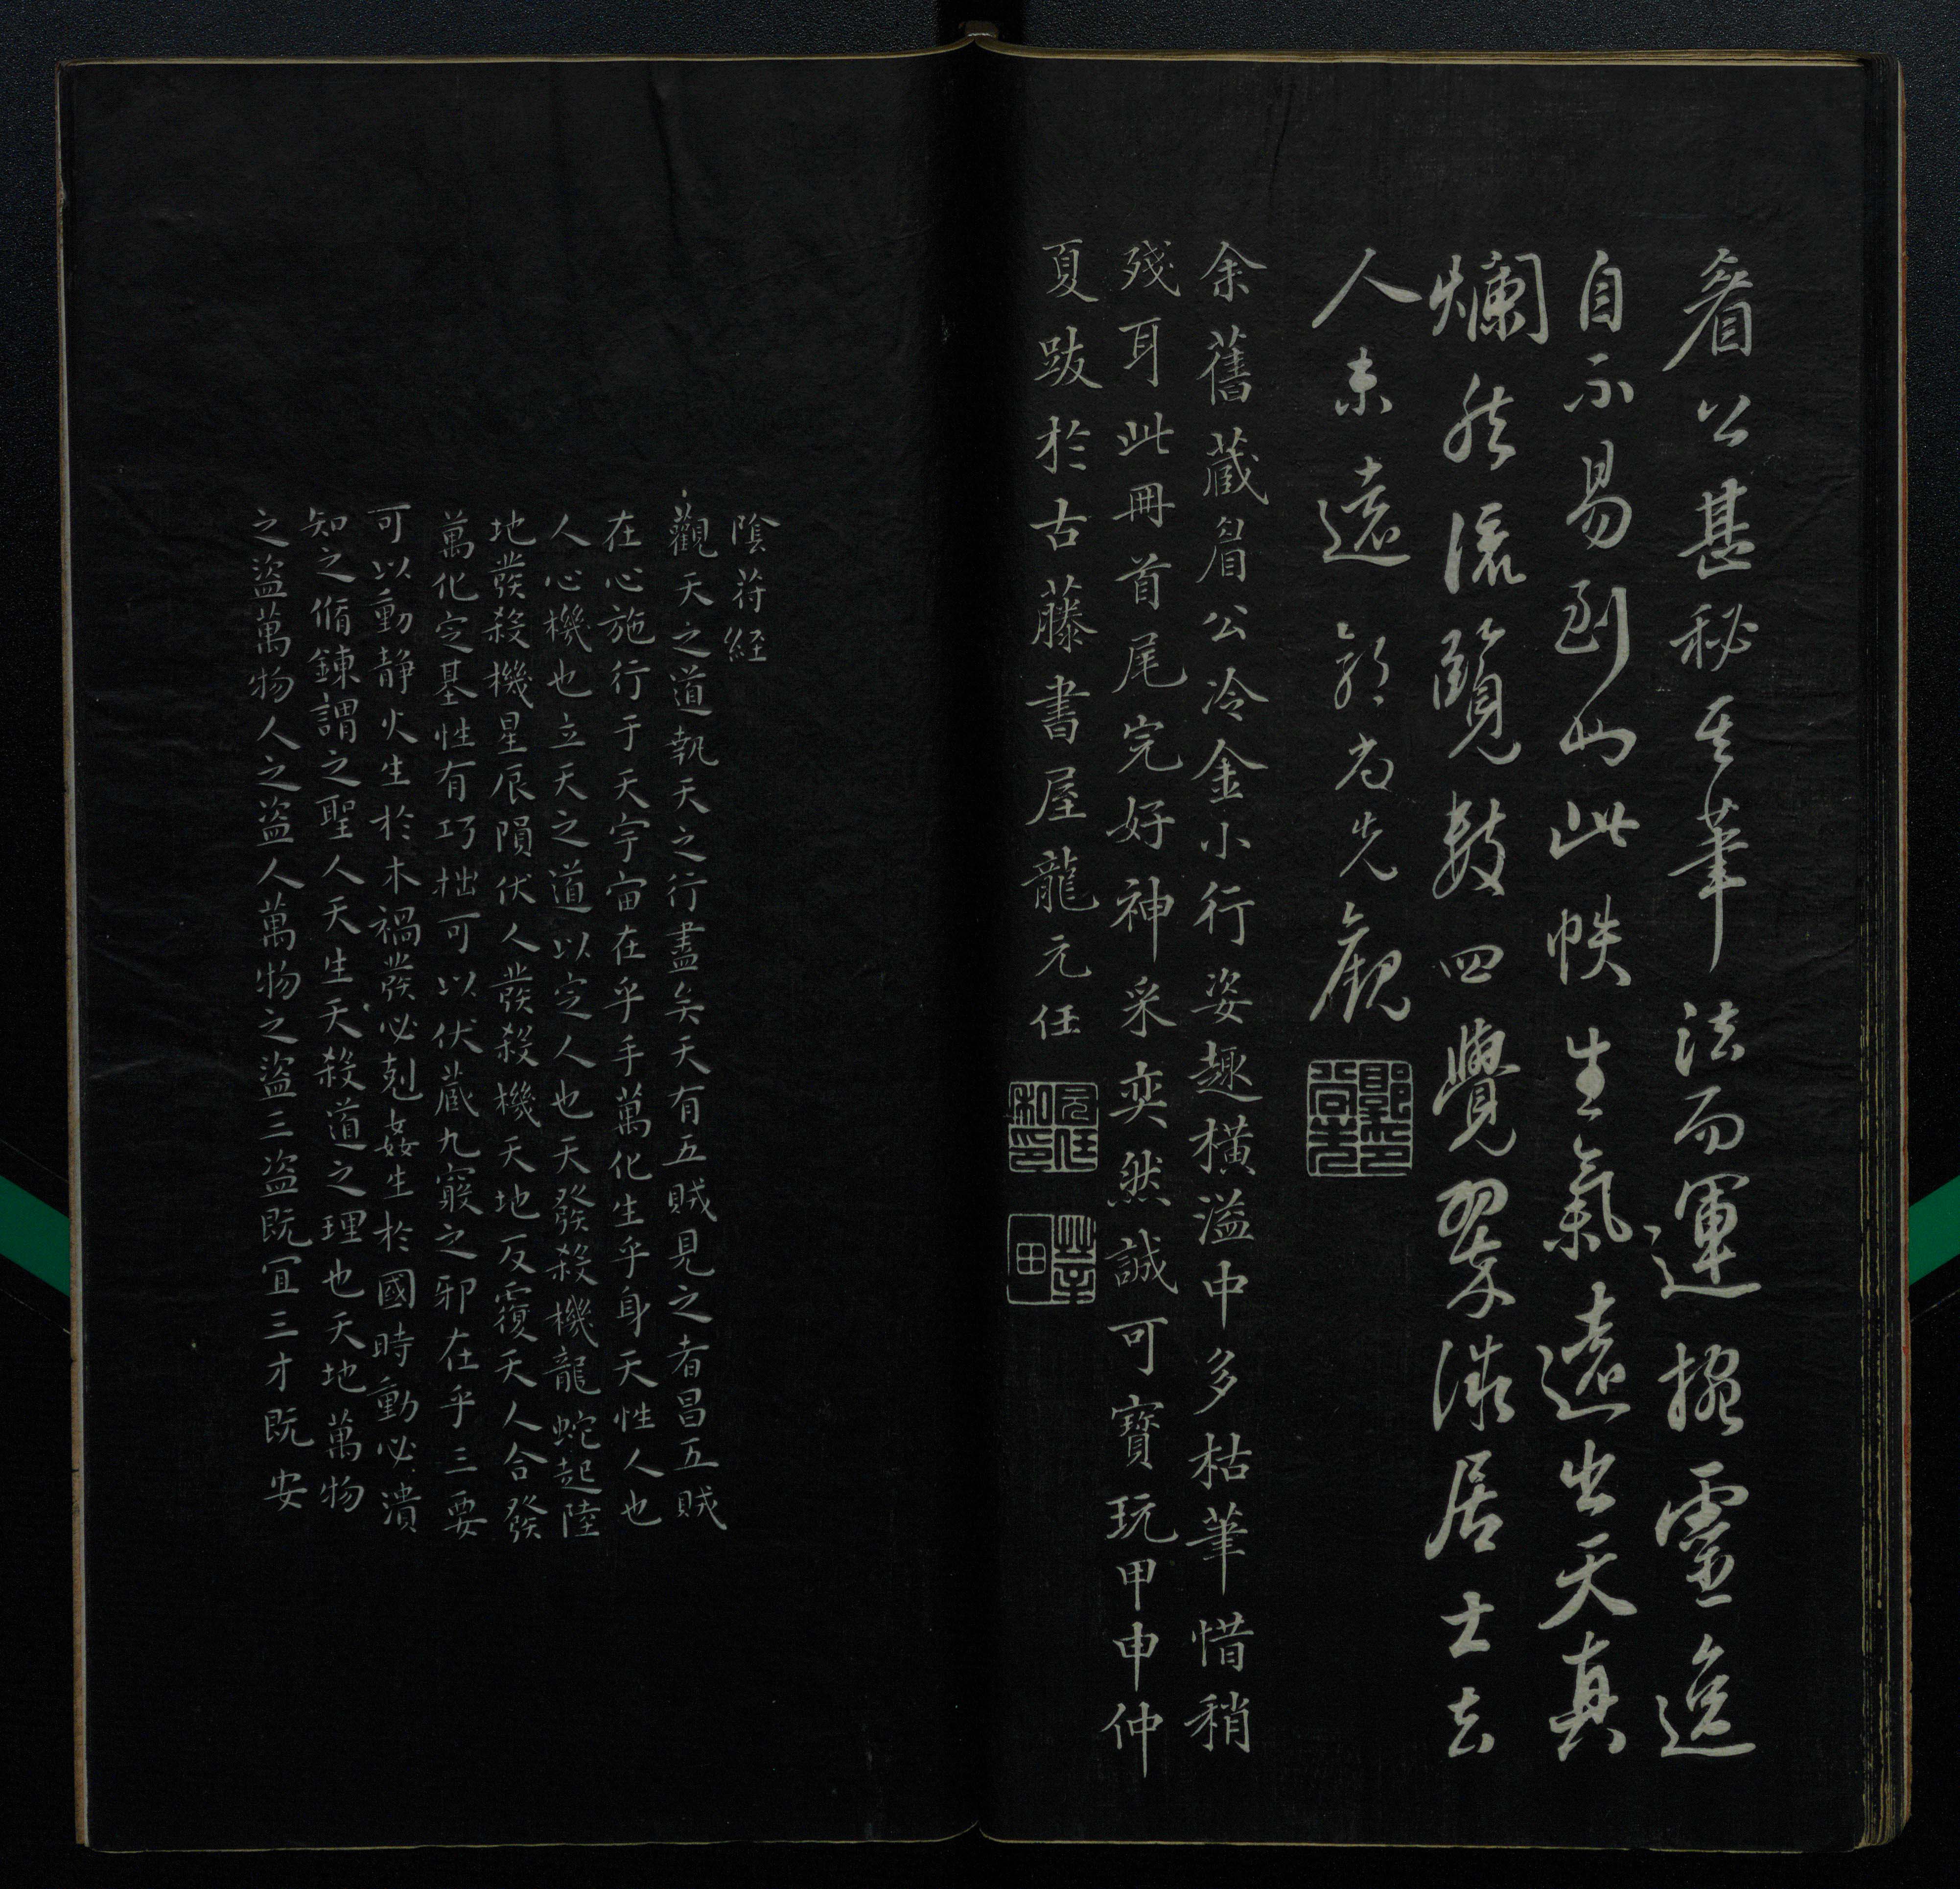 眉公甚秘其筆法而運搖靈逸
自不易到如此帙生氣遠出天真
爛然流覽數四覺翠微居士去
人未遠 郭尚先觀
郭印尚先
余舊藏眉公冷金小行姿趣橫溢中多枯筆惜稍
殘耳此冊首尾完好神采奕然誠可寶玩甲申仲
夏跋於古藤書屋龍元任
元任私印
陰苻経
觀天之道執天之行盡矣天有五賊見之者昌五賊
在心施行于天宇宙在乎手萬化生乎身天性人也
人心機也立天之道以定人也天發殺機龍蛇起陸
地發殺機星辰隕伏人發殺機天地反覆天人合發
萬化定基性有巧拙可以伏藏九竅之邪在乎三要
可以動静火生於木禍發必剋姦生於國時動必潰
知之脩鍊謂之聖人天生天殺道之理也天地萬物
之盜萬物人之盜人萬物之盜三盜既宜三才既安